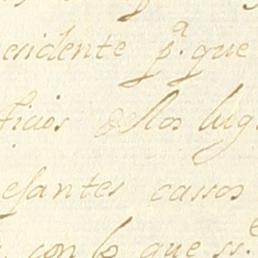 esidente p.ª que
ficios dellos lug
esantes cassos
con lo que ss.e